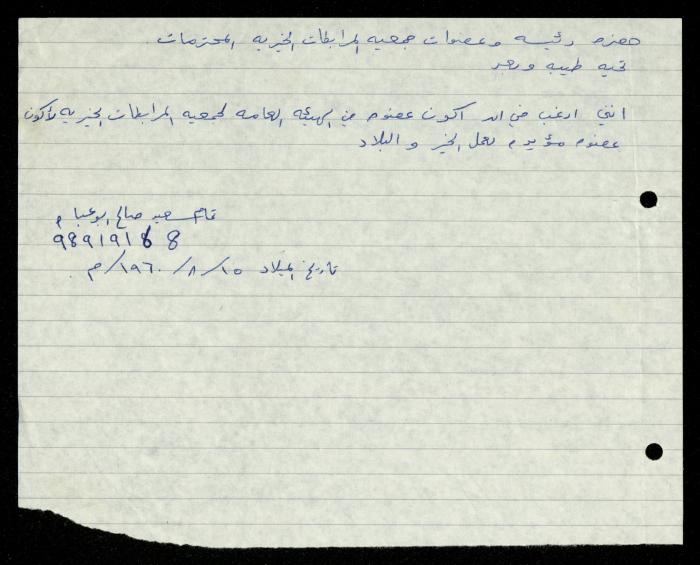 حضرة رئيسة وعضوات جمعية المرابطات الخيرية المحترمات
تحية طيبة وبعد
انني ارغب في ان اكون عضوه في الهيئة العامه لجمعيه المرابطات الخيريه لأكون
عضوه مؤيده لعمل الخير و البلاد
سعيد صالح ابو عباه
98919188
تاريخ الميلاد ١٥/٨/١٩٦٠م